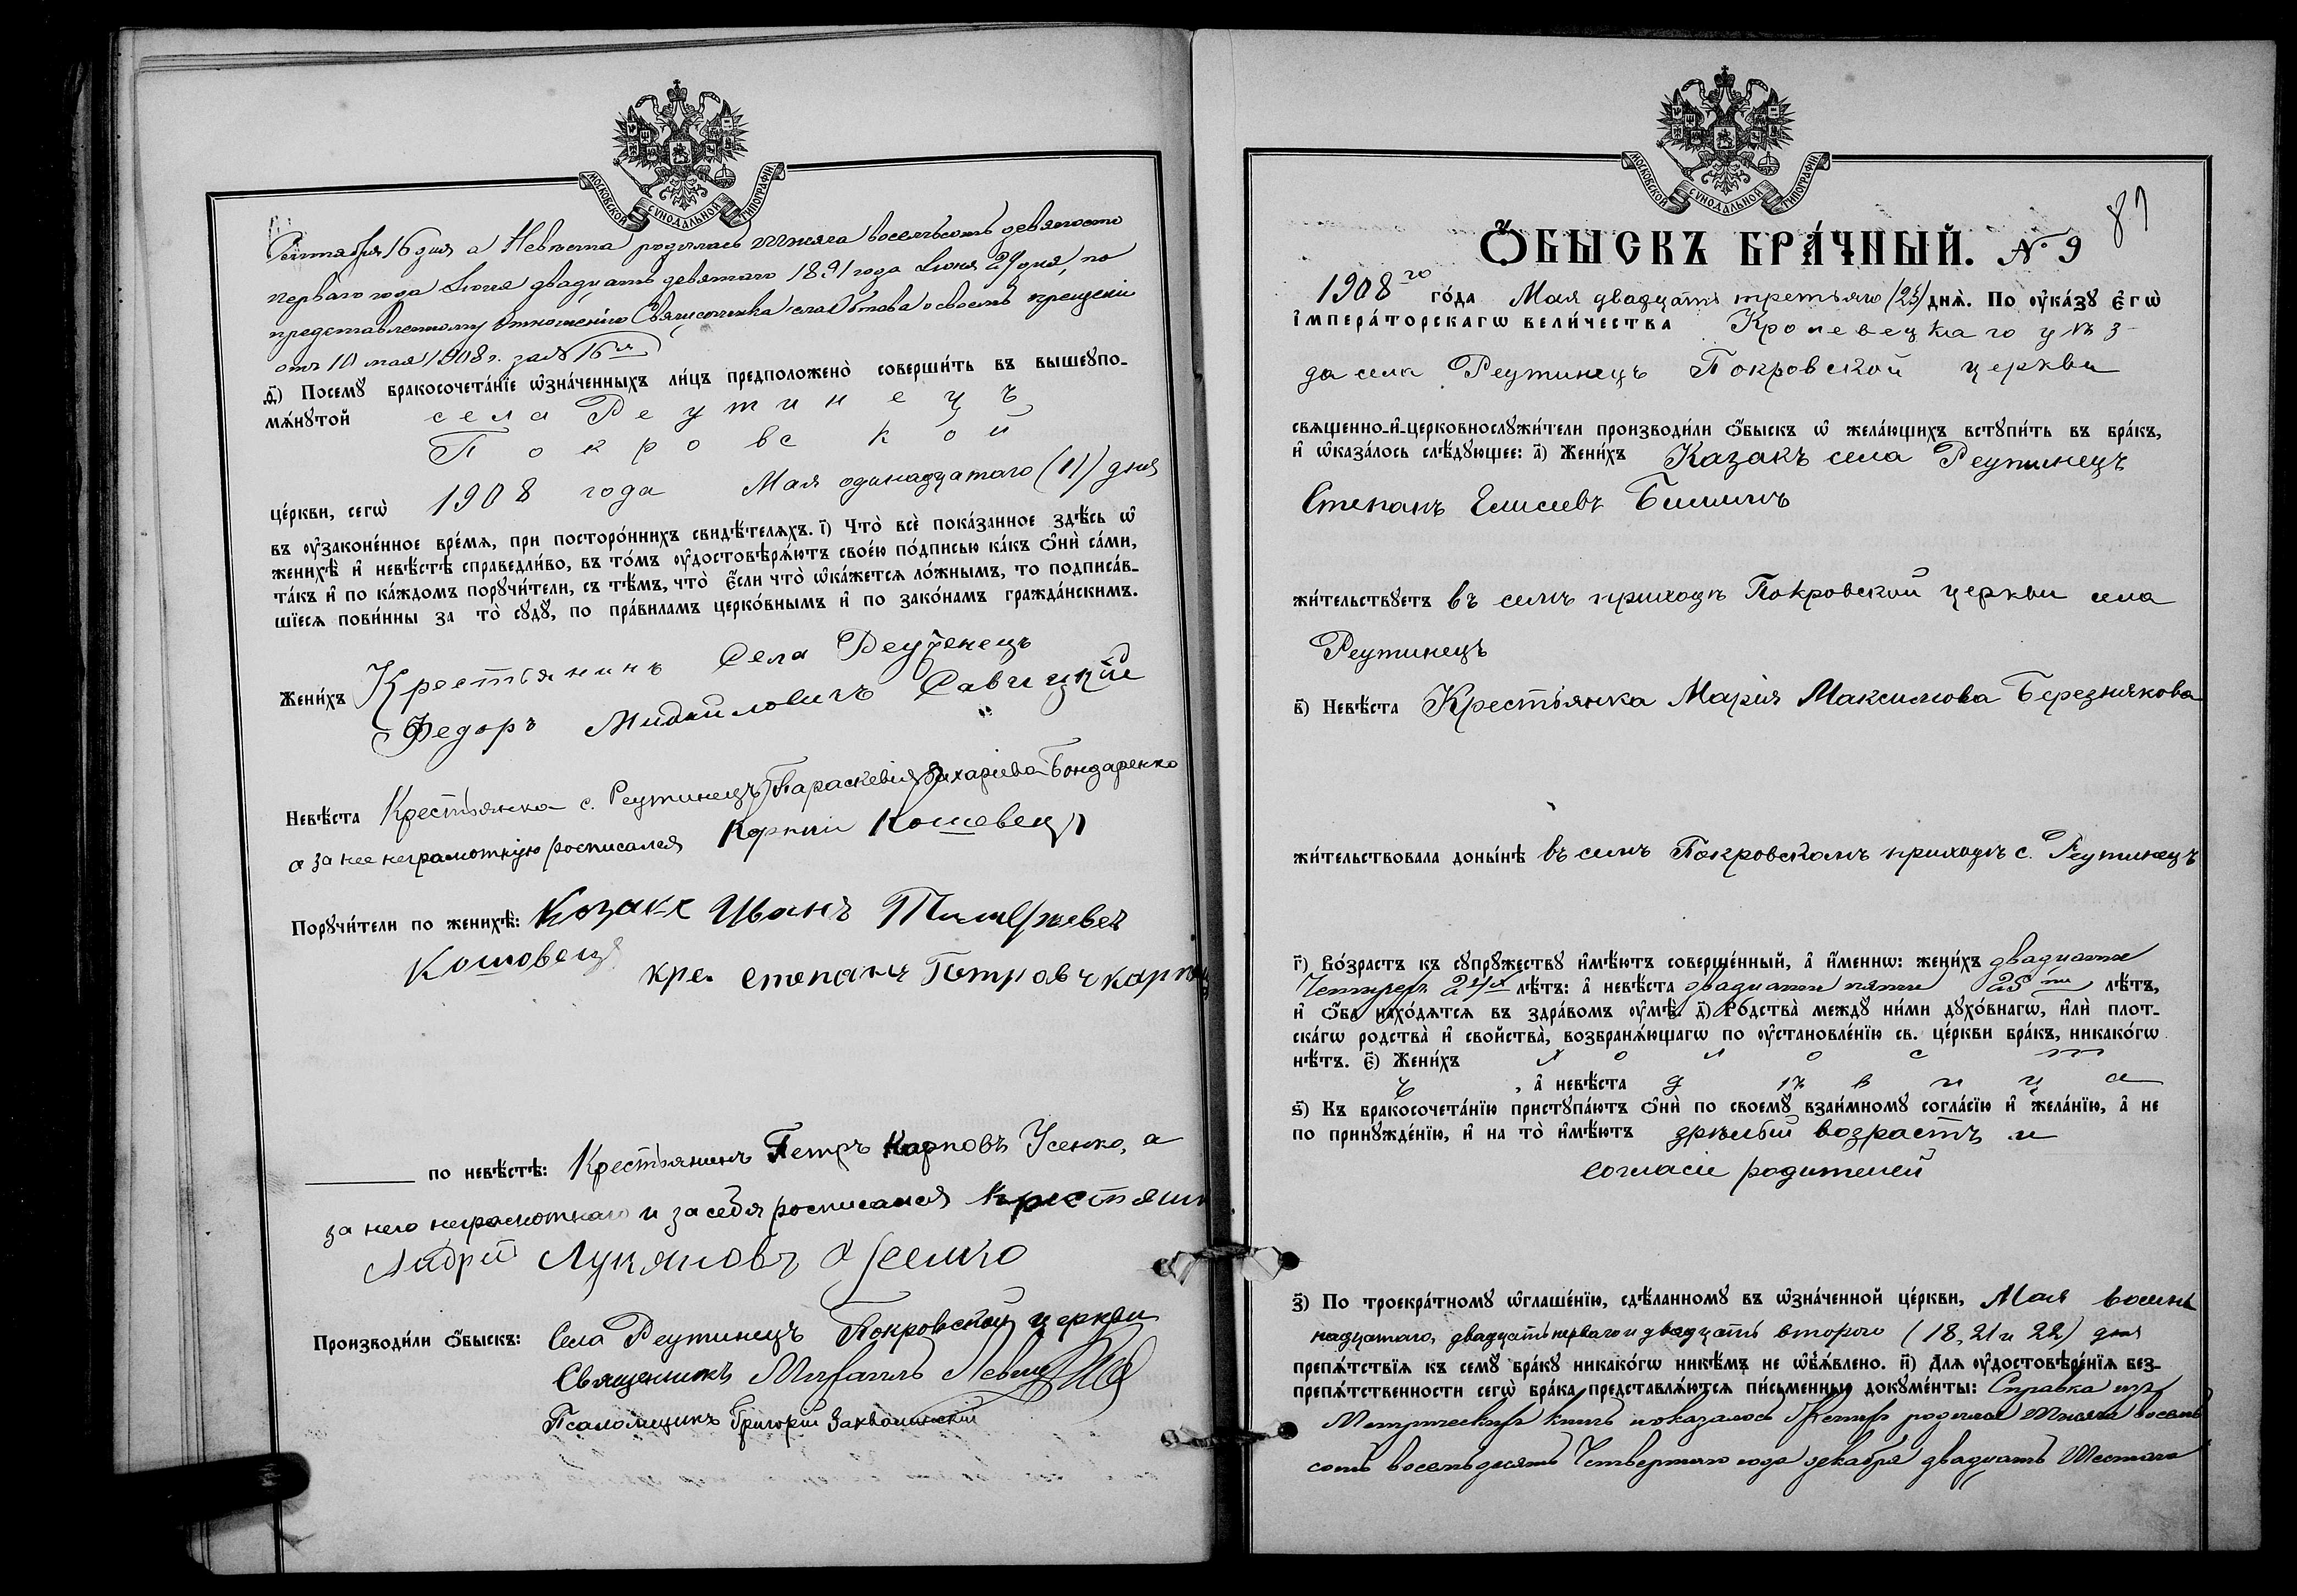 МОСКОВСКОЙ СѴНОДАЛЬНОЙ ТИПОГРАФІИ.
Сентября 16 дня а Невѣста родилась тысяча восемьсотъ девяносто
перваго года Іюня двадцать девятаго 1891 года Іюня 29 дня, по
представленному отношенію Священника о своемъ крещеніи
отъ 10 мая 1908 г. за № 16
д҃) Посемꙋ бракосочета́нїе ѡзна́ченныхъ ли́цъ предположено̀ соверши́ть въ вышеꙋпо-
мѧ́нꙋтой села Реутинецъ
Покровской
це́ркви, сегѡ̀ 1908 года Мая одинадцатаго (11) дня
въ ᲂу҆законе́нное вре́мѧ, при посторо́ннихъ свидѣ́телѧхъ. і҃) Что̀ всѐ пока́занное здѣ́сь ѡ҆
женихѣ̀ и҆ невѣ́стѣ справедли́во, въ то́мъ ᲂу҆достовѣрѧ́ютъ свое́ю по́дписью ка́къ ѻ҆нѝ са́ми,
та́къ и҆ по ка́ждомъ порꙋчи́тели, съ тѣ́мъ, что̀ є҆́сли что̀ ѡ҆ка́жетсѧ ло́жнымъ, то подписа́в-
шїесѧ пови́нны за то̀ сꙋдꙋ̀, по пра́виламъ церко́внымъ и҆ по зако́намъ гражда́нскимъ.
Жени́хъ Крестьянинъ Села Реутенецъ
Федоръ Михаиловичъ Савицкій
Невѣ́ста Крестьянка с. Реутинецъ Параскевія Захаріева Бондаренко
а за нее неграмотную росписался Корній Кошевецъ
Порꙋчи́тели по женихѣ̀: Козакъ Иванъ
Кошовецъ кре. степанъ Петровъ
по невѣ́стѣ: Крестьянинъ Петръ Карповъ Усенко, а
за него неграмотнаго и за себя росписался
Андрій Лукяновъ Усенко
Производи́ли ѻ҆́быскъ: Села Реутинецъ Покровской церкви
Священникъ Михаилъ
Псаломщикъ Григорій
МОСКОВСКОЙ СѴНОДАЛЬНОЙ ТИПОГРАФІИ.
81
Ѻ҆́БЫСКЪ БРА́ЧНЫЙ. № 9
1908го го́да Мая двадцать третьяго (23) днѧ̀. По ᲂу҆ка́зꙋ є҆гѡ̀
і҆мпера́торскагѡ вели́чества Кролевецкаго уѣз-
да села Реутинецъ Покровской церкви
свѧщенно-и҆-церковнослꙋжи́тели производи́ли ѻ҆́быскъ ѡ҆ жела́ющихъ встꙋпи́ть въ бра́къ,
и҆ ѡ҆каза́лось слѣ́дꙋющее: а҃) Жени́хъ Казакъ села Реутинецъ
Степанъ Елисеевъ Билинъ
жи́тельствꙋетъ въ семъ приходѣ Покровской церкви села
Реутинецъ
в҃) Невѣ́ста Крестьянка Марія Максимова Березнякова
жи́тельствовала доны́нѣ въ семъ Покровскомъ приходѣ с. Реутинецъ
г҃) Во́зрастъ къ сꙋпрꙋ́жествꙋ и҆мѣ́ютъ соверше́нный, а҆ и҆́меннѡ: жени́хъ двадцати
Четырехъ 24х лѣ́тъ: а҆ невѣ́ста двадцати пяти 25ти лѣ́тъ,
и҆ ѻ҆́ба нахо́дѧтсѧ въ здра́вомъ ᲂу҆мѣ̀. д҃) Родства̀ междꙋ̀ ни́ми дꙋхо́внагѡ, и҆лѝ плот-
ска́гѡ родства̀ и҆ свойства̀, возбранѧ́ющагѡ по ᲂу҆становле́нїю св. це́ркви бра́къ, никако́гѡ
нѣ́тъ. є҃) Жени́хъ холост
ъ, а҆ невѣ́ста дѣвица
ѕ҃) Къ бракосочета́нїю пристꙋпа́ютъ ѻ҆нѝ по своемꙋ̀ взаи́мномꙋ согла́сїю и҆ жела́нїю, а҆ не
по принꙋжде́нїю, и҆ на то̀ и҆мѣ́ютъ зрѣлый возрастъ и
согласіе родителей
з҃) По троекра́тномꙋ ѡ҆глаше́нїю, сдѣ́ланномꙋ въ ѡ҆зна́ченной це́ркви, Мая восем
надцатаго, двадцать перваго и двадцать второго (18, 21 и 22) дня
препѧ́тствїѧ къ семꙋ̀ бра́кꙋ никако́гѡ никѣ́мъ не ѡ҆б̾ѧ́влено. и҃) Для ᲂу҆достовѣре́нїѧ без-
препѧ́тственности сегѡ̀ бра́ка представлѧ́ютсѧ пи́сьменные докꙋме́нты: Справка изъ
Метрическихъ книгъ показалось Женихъ родился тысяча восемь
сотъ восемьдесятъ Четвертаго года декабря двадцать Шестаго